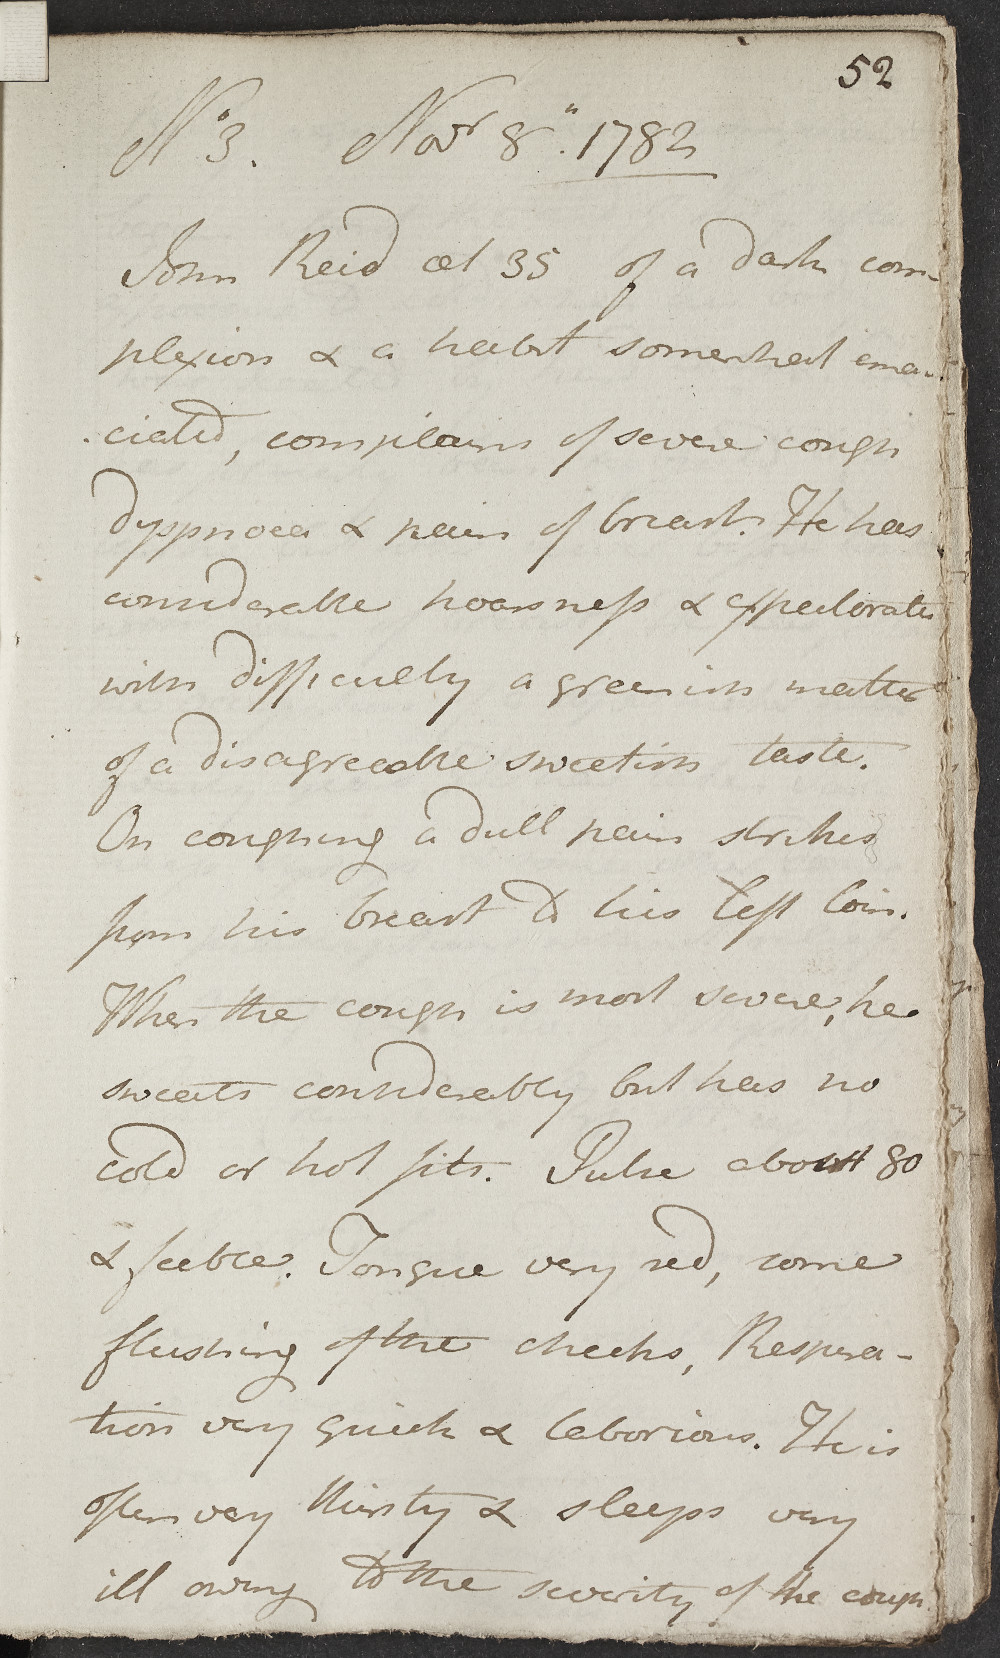 52
No 3. Novr 8th. 1782
John Reid æt 35 of a dark com-
plexion & a habit somewhat ema-
ciated, complains of severe cough
dyspnoea & pain of breast. He has
considerable hoarsness & expectorates
with difficulty a greenish matter
of a disagreeable sweetish taste.
On coughing a dull pain strikes
from his breast to his left loin.
When the cough is most severe, he
sweats considerably but has no
cold or hot fits. Pulse about 80
& feeble. Tongue very red, some
flushing of the cheeks, Respira-
tion very quick & laborious. He is
often very thirsty & sleeps very
ill owing to the severity of the cough